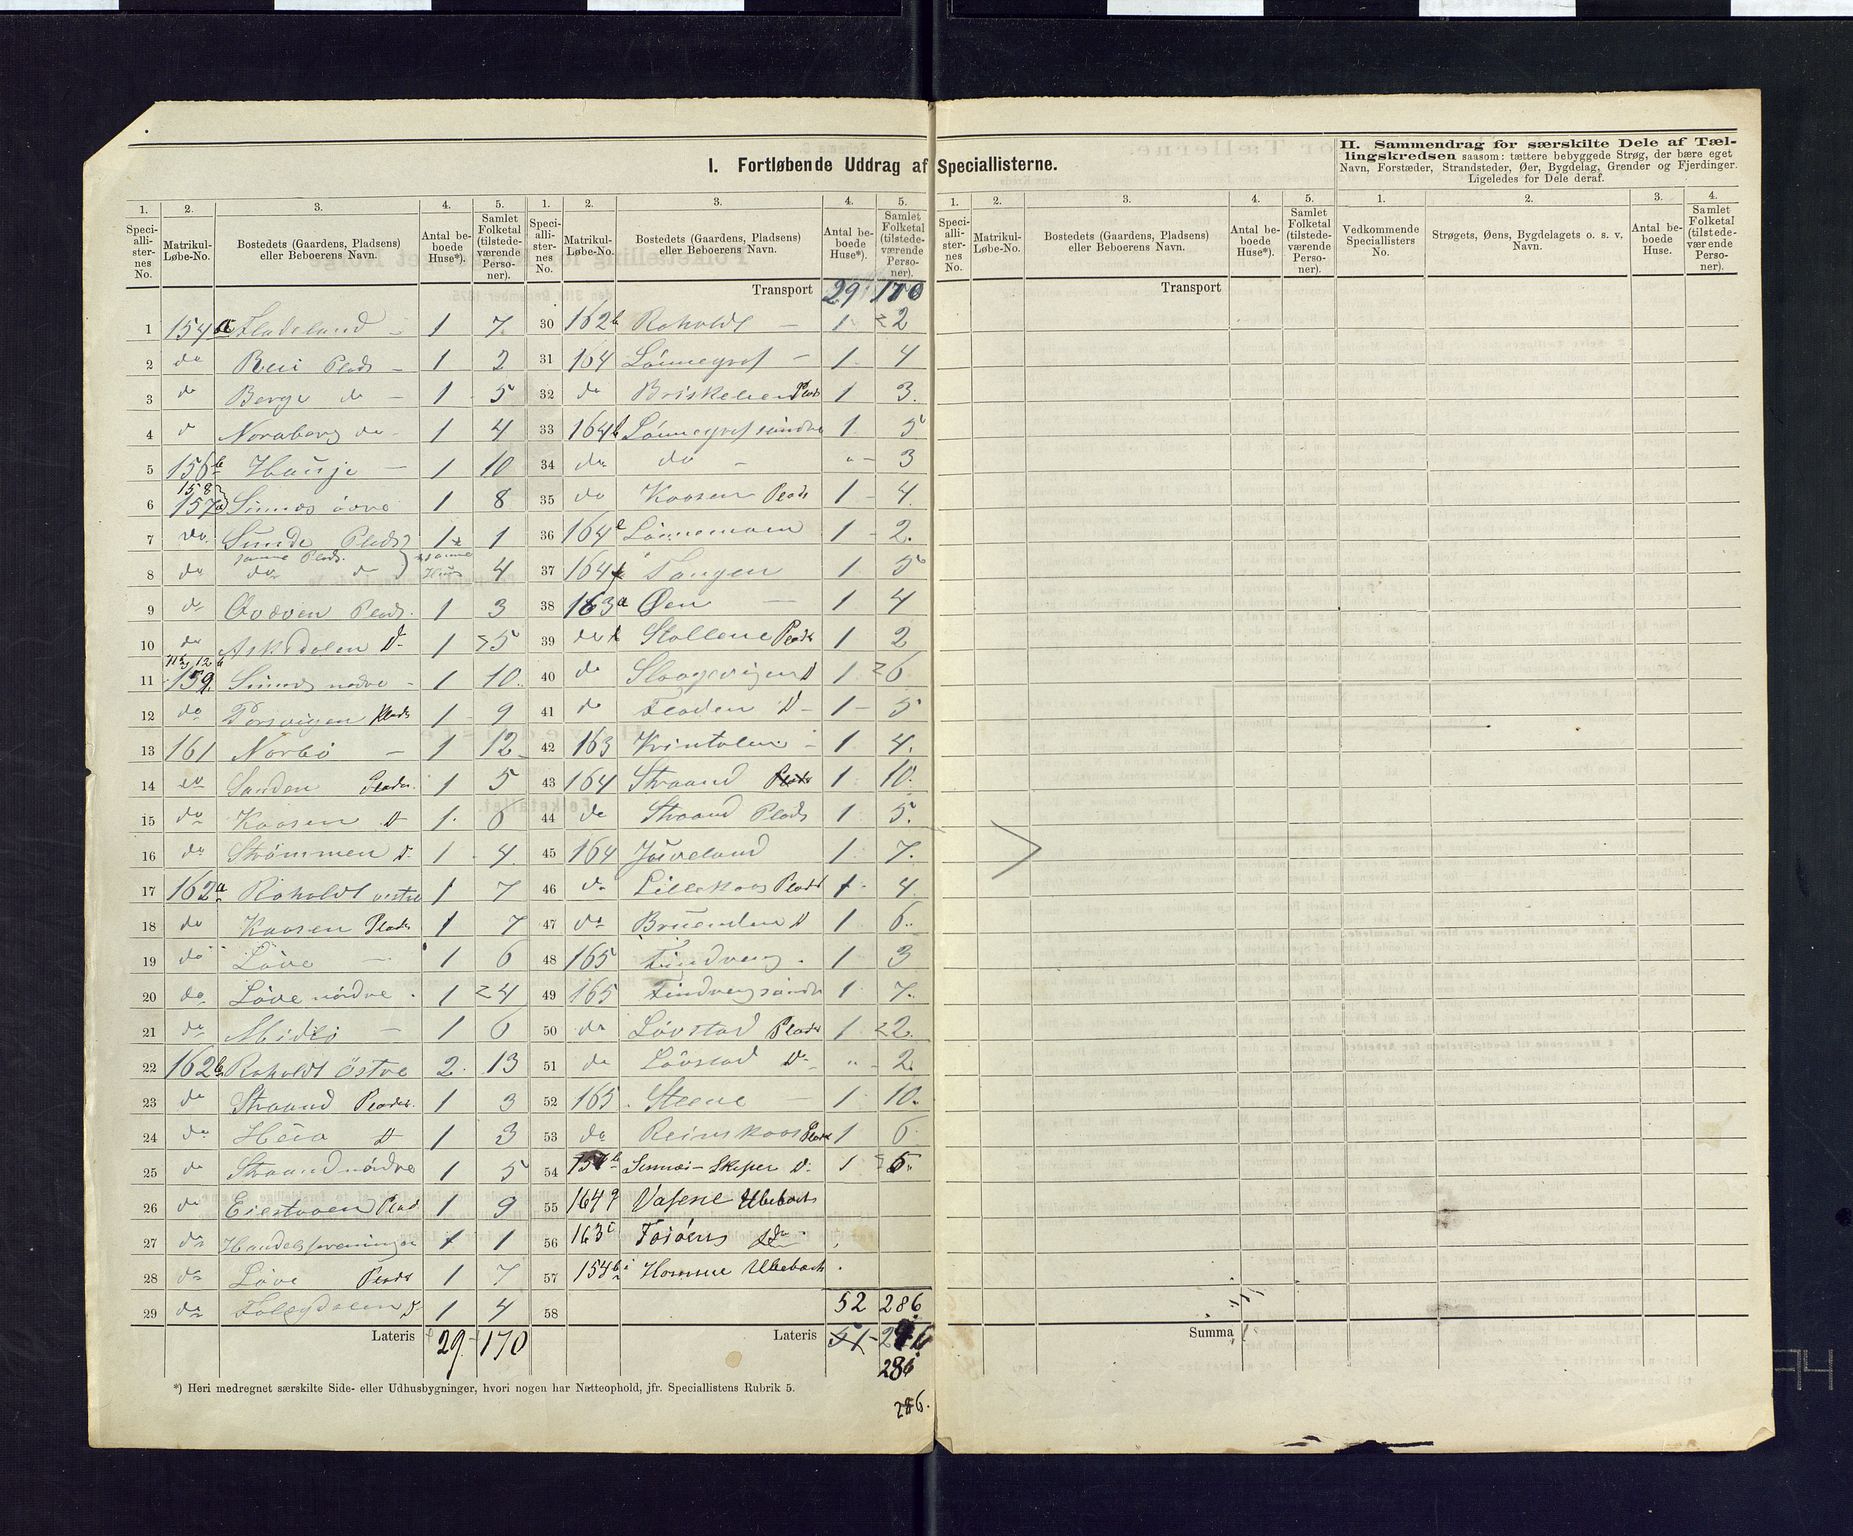 I. Fortløbende Uddrag af Speciallisterne.
II. Sammendrag for særskilte Dele af Tæl-
lingskredsen saasom: tættere bebyggede Strøg, der bære eget
Navn, Forstæder, Strandsteder, Øer, Bygdelag, Grender og Fjerdinger.
Ligeledes for Dele deraf.
1. 2. 3. 4. 5. 1. 2. 3. 4. 5. 1. 2. 3. 4. 5. 1. 2. 3. 4.
Speciallisternes No. Matrikul-Løbe-No. Bostedets (Gaardens, Pladsens) eller Beboerens Navn. Antal beboede Huse*). Samlet Folketal (tilstedeværende Personer).
Speciallisternes No. Matrikul-Løbe-No. Bostedets (Gaardens, Pladsens) eller Beboerens Navn. Antal beboede Huse*). Samlet Folketal (tilstedeværende Personer).
Speciallisternes No. Matrikul-Løbe-No. Bostedets (Gaardens, Pladsens) eller Beboerens Navn. Antal beboede Huse*). Samlet Folketal (tilstedeværende Personer).
Vedkommende Speciallisters No. Strøgets, Øens, Bygdelagets o. s. v. Navn. Antal beboede Huse. Samlet Folketal (tilstedeværende Personer).
1 154 a Fladeland 1 7
2 do Rei Plads 1 2
3 do Berge do 1 5
4 d Noraberg do 1 4
5 156 b Hauje 1 10
6 158 157 a Sinnæs øvre 1 8
7 do Sunde Plads 1 1
8 do samme Plads. do do samme Huus 4
9 do Plads. 1 3
10 do Askedalen D- 1 5
11 159 Sinnæs nedre 1 10
12 do Torsvigen Plads 1 9
13 161 Norbø 1 12
14 do Sanden Plads 1 5
15 do Kaasen D 1 6
16 do Strømmen D 1 4
17 162 a Roholdt vestre 1 7
18 do Kaasen Plads 1 7
19 do Løve 1 6
20 do Løve nordre 1 4
21 do Midbø 1 6
22 162 b Roholdt Østre 2 13
23 do Straand Plads 1 3
24 do Heia D 1 3
25 do Straand nordre 1 5
26 do Eiestoven Plads 1 9
27 do Handelsforeningen 1 1
28 do Løve Plads 1 7
29 do D 1 4
Lateris 29 170
Transport 29 170
30 162 b Roholdt 1 2
31 164 Lønnegrof 1 4
32 do Briskelien Plads 1 3
33 164 b Lønnegrof søndre 1 5
34 do do " 3
35 do Kaasen Plads 1 4
36 164 Lønnemoen 1 2
37 164 Tangen 1 5
38 163 a Øen 1 4
39 do Stollene Plads 1 2
40 do D 1 6
41 do Fladen D 1 5
42 163 1 4
43 164 Straand Plads 1 10
44 do Straand Plads 1 5
45 164 Juveland 1 7
46 do Lillekaas Plads 1 4
47 do D 1 6
48 165 Findreng 1 3
49 165 Findreng søndre 1 7
50 do Løvstad Plads 1 2
51 do Løvstad D " 2
52 165 Steene 1 10
53 do Reinskaas Plads 1 6
54 b Sinnæs Skifer D 1 5
55 164 g Vasene Ubeboet
56 163 c Forøens do
57 154 b Homme Ubeboet
58 52 286
Lateris 51
286
286.
Transport
Summa
*) Heri medregnet særskilte Side- eller Udhusbygninger, hvori nogen har Natteophold, jfr. Speciallistens Rubrik 5.